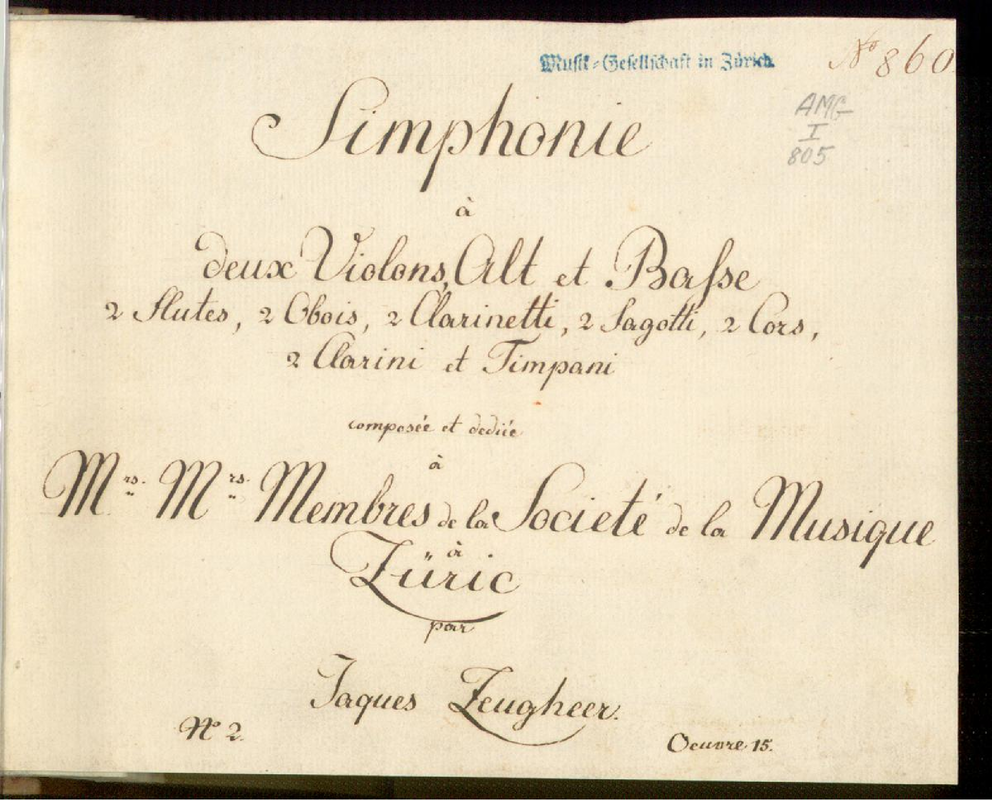 Musik-Gesellschaft in Zürich.
No 860.
AMG
I
805
Simphonie
à
deux Violons, Alt et Baſse
2 Flutes, 2 Obois, 2 Clarinetti, 2 Fagotti, 2 Cors,
2 Clarini et Timpani
composée et dediée
à
Mrs. Mrs. Membres de la Societé de la Musique
à
Züric
par
Jaques Zeugheer.
No 2.
Oeuvre 15.